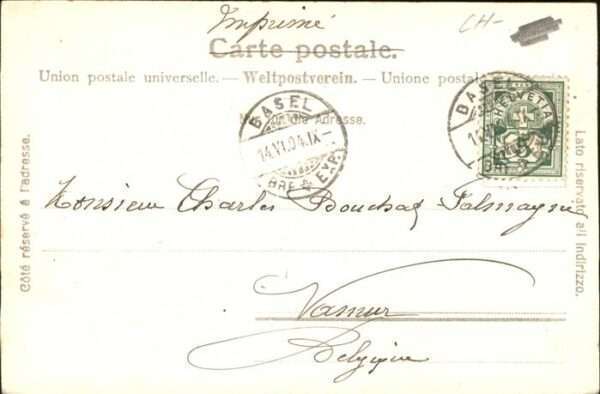 Imprimé
CH-
Carte postale.
Union postale universelle. — Weltpostverein. — Unione postale
Nur für die Adresse.
BASEL
14.VI.04.IX–
BRF. EXP.
BASEL
HELVETIA
5
Côté réservé à l'adresse.
Lato riservato all indirizzo.
Monsieur Charles
Namur
Belgique